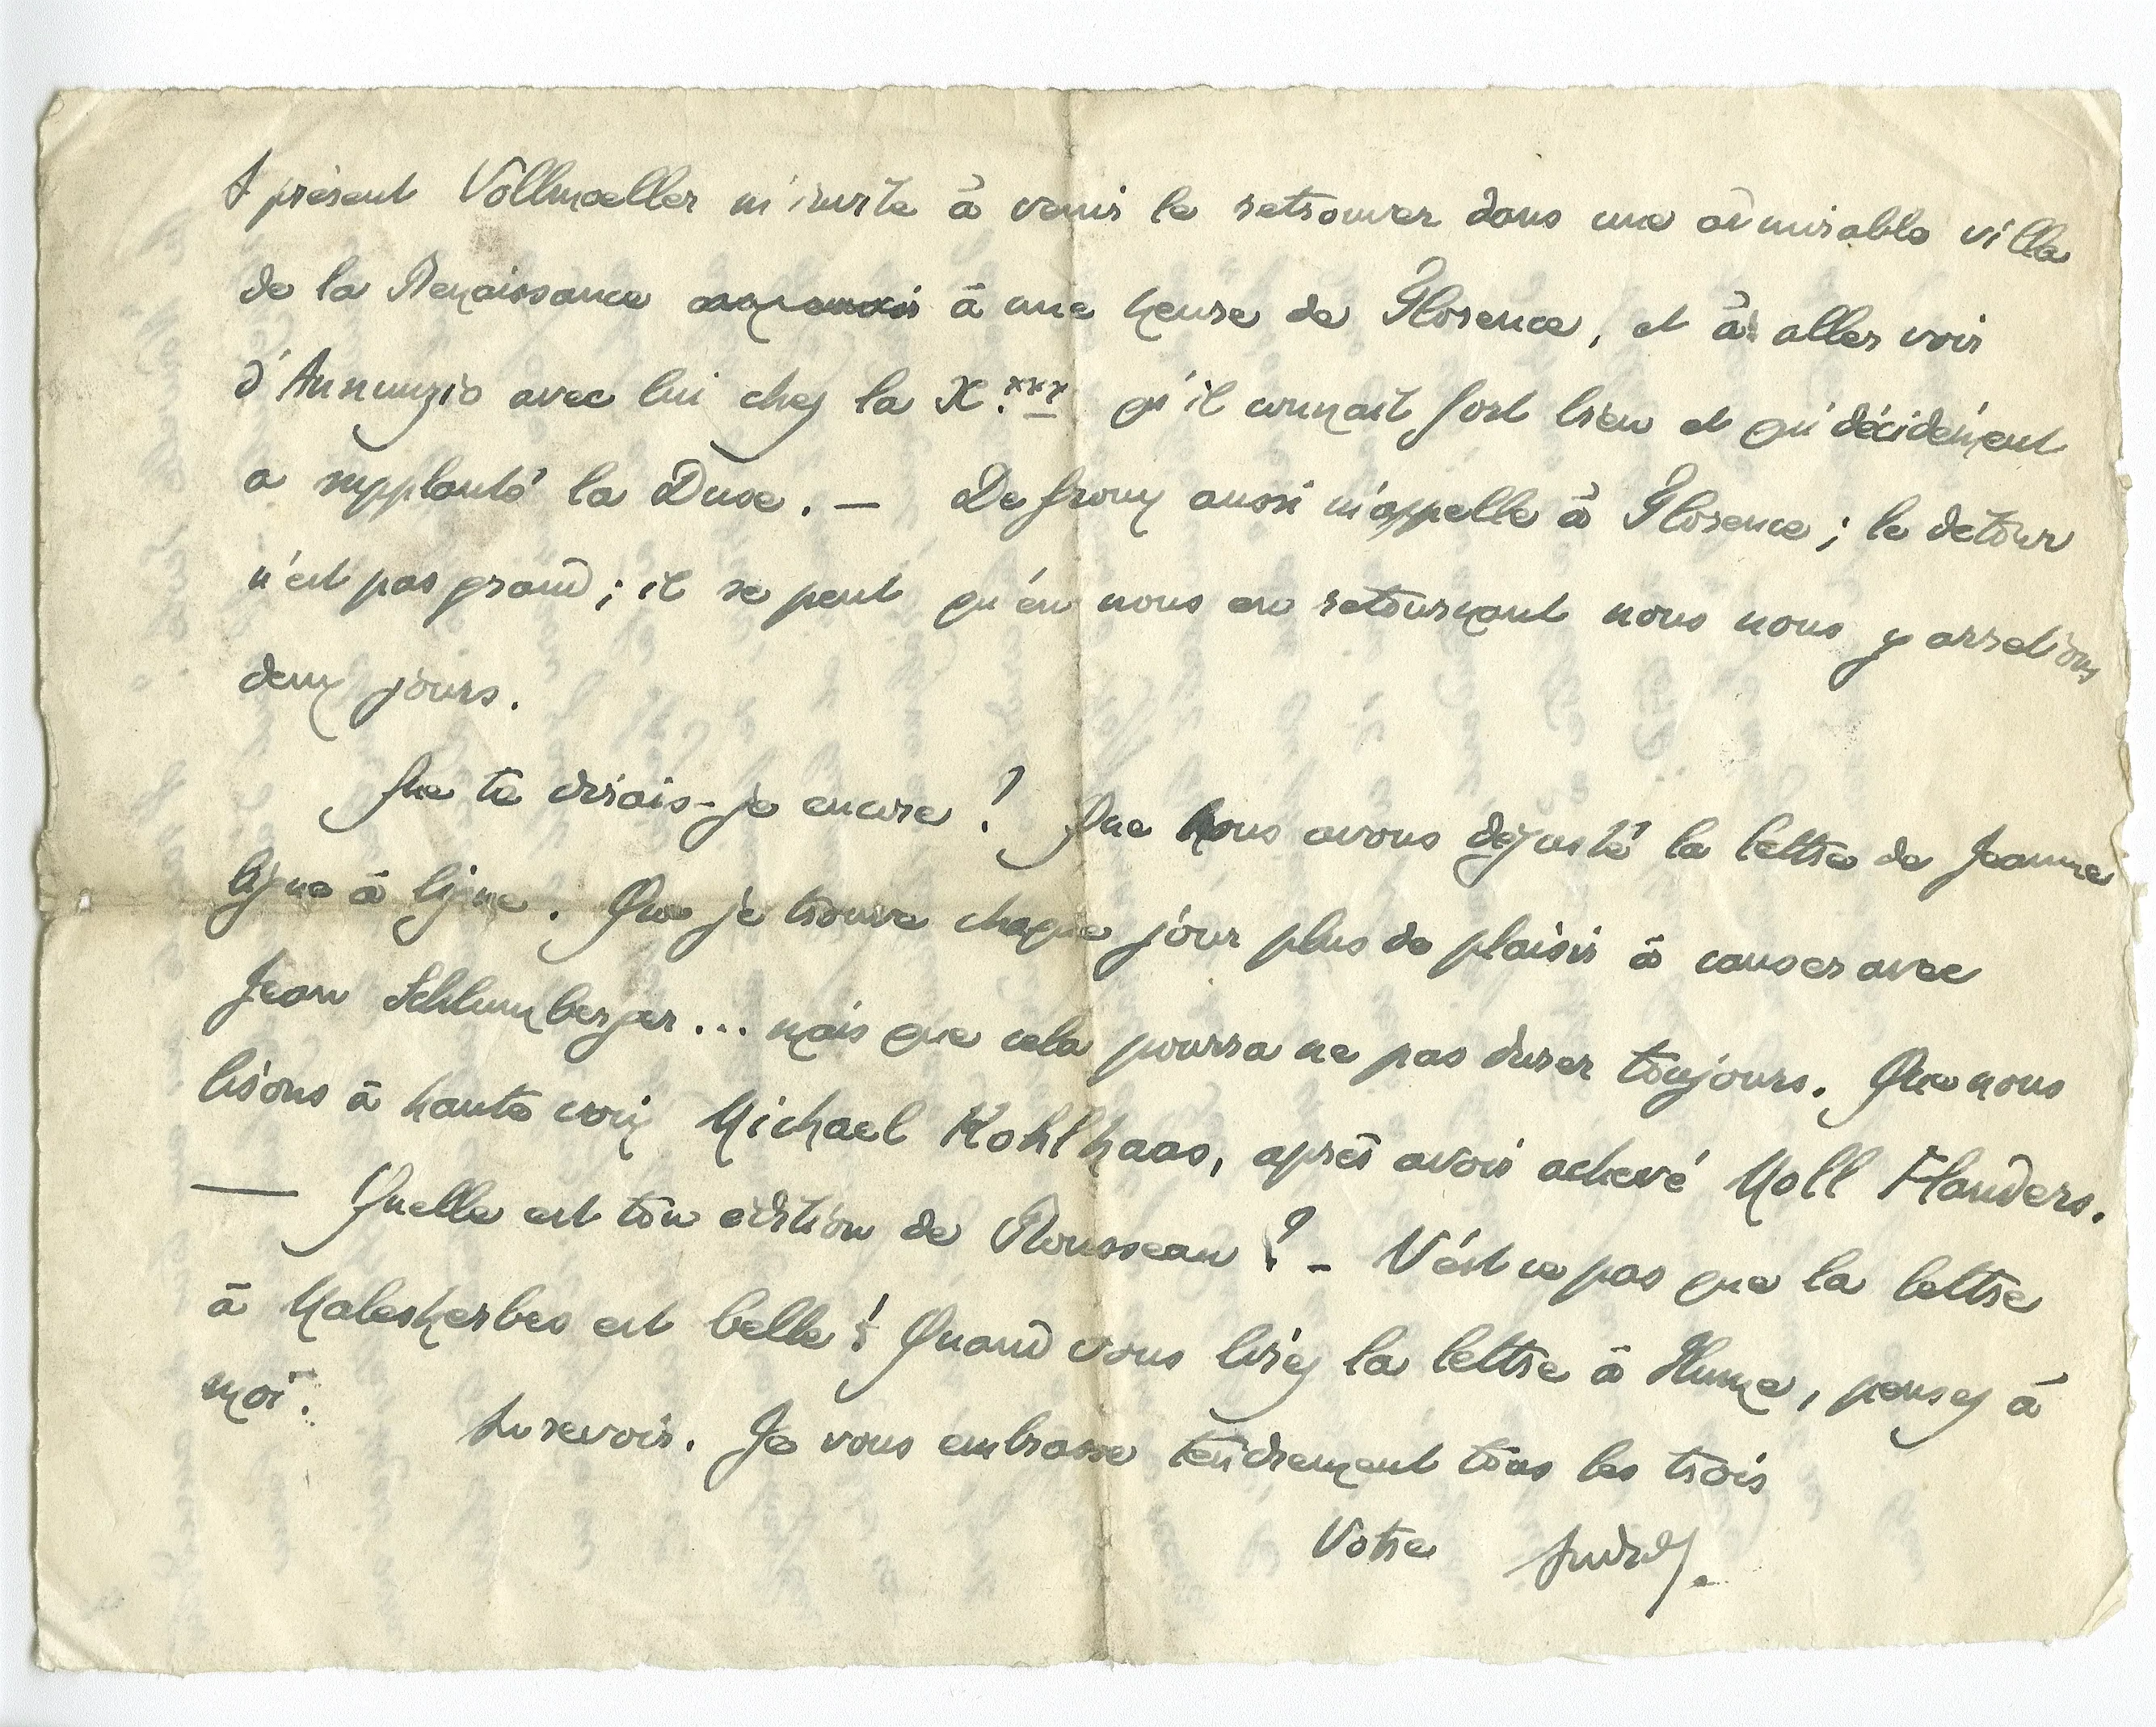 A présent Vollmoeller m'invite à venir le retrouver dans une admirable villa
de la Renaissance à une heure de Florence, et à aller voir
d'Annunzio avec lui chez la X.*** qu'il connait fort bien et qui décidément
a supplanté la Duse. — De Groux aussi m'appelle à Florence ; le détour
n'est pas grand ; il se peut qu'en nous en retournant nous nous y arretions
deux jours.
Que te dirais-je encore ? Que nous avons dégusté la lettre de Jeanne
ligne à ligne. Que je trouve chaque jour plus de plaisir à causer avec
Jean Schlumberger... mais que cela pourra ne pas durer toujours. Que nous
lisons à haute voix Michael Kohlhaas, après avoir achevé Moll Flanders.
— Quelle est ton édition de Rousseau ? – N'est ce pas que la lettre
à Malesherbes est belle ! Quand vous lirez la lettre à Hume, pensez à
moi.
Au revoir. Je vous embrasse tendrement tous les trois
Votre André G.